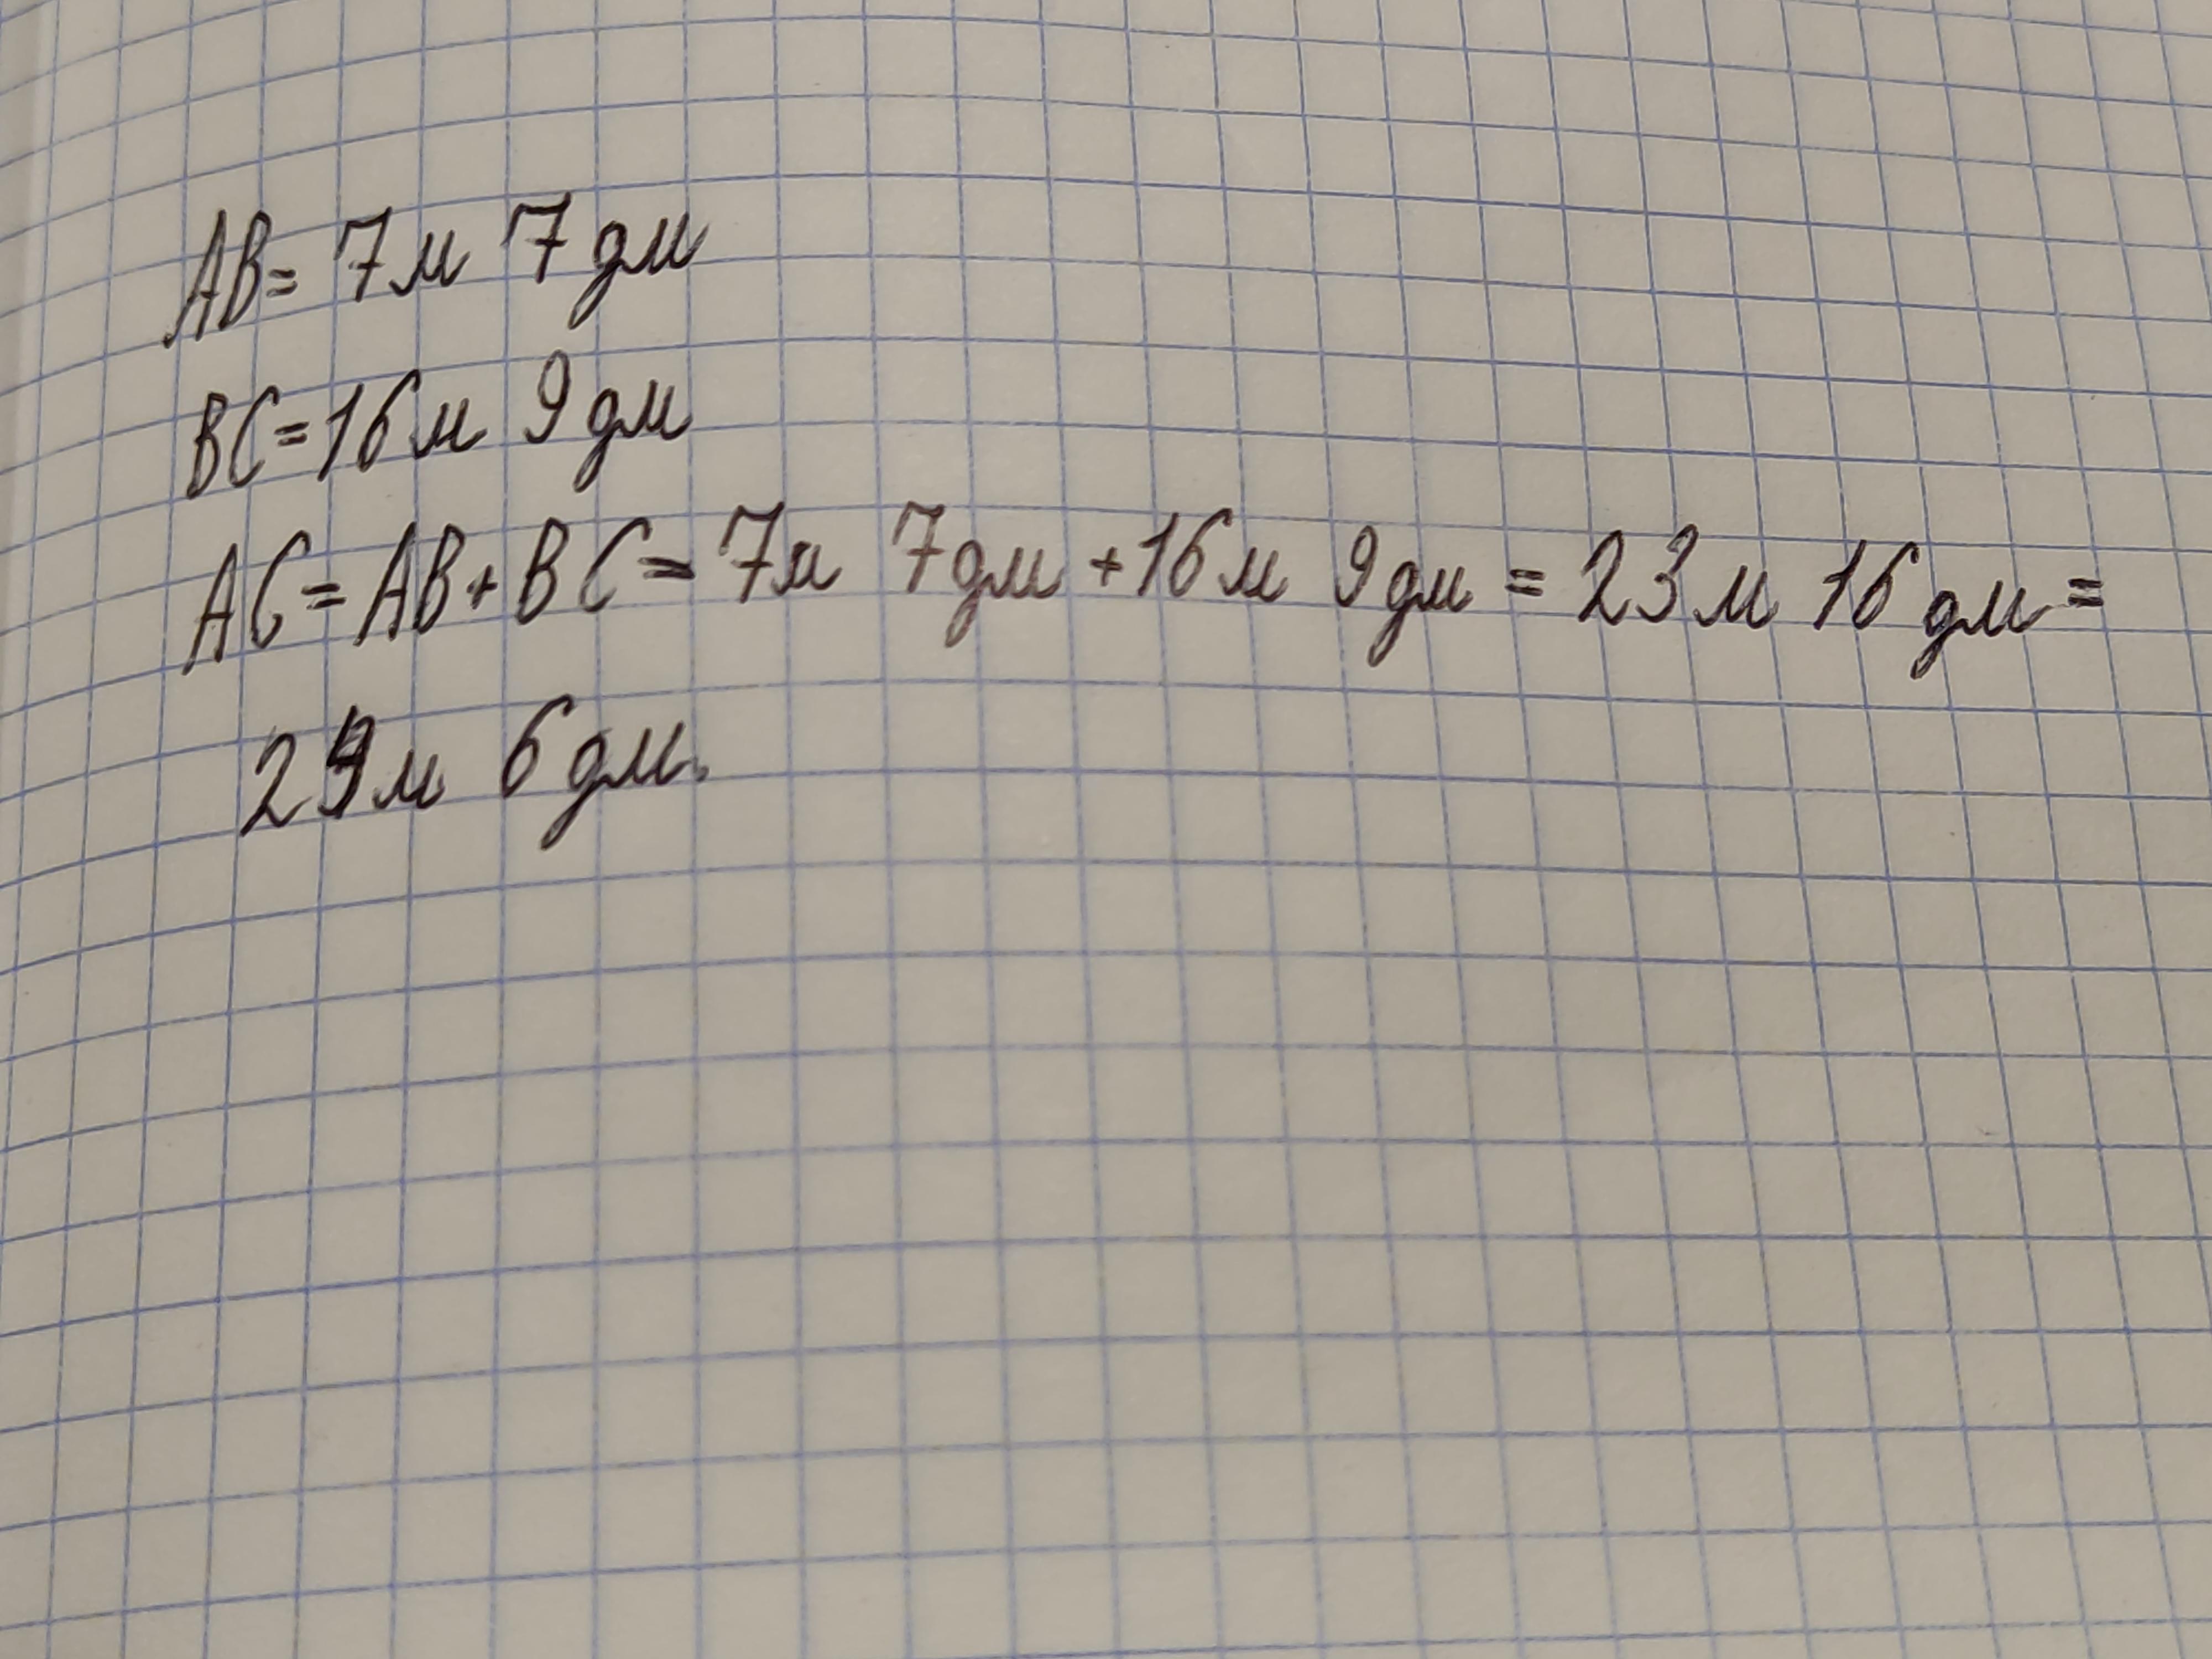 AB = 7м 7дм
BC = 16м 9дм
AC = AB + BC = 7м 7дм + 16м 9дм = 23м 16дм =
24м 6дм.